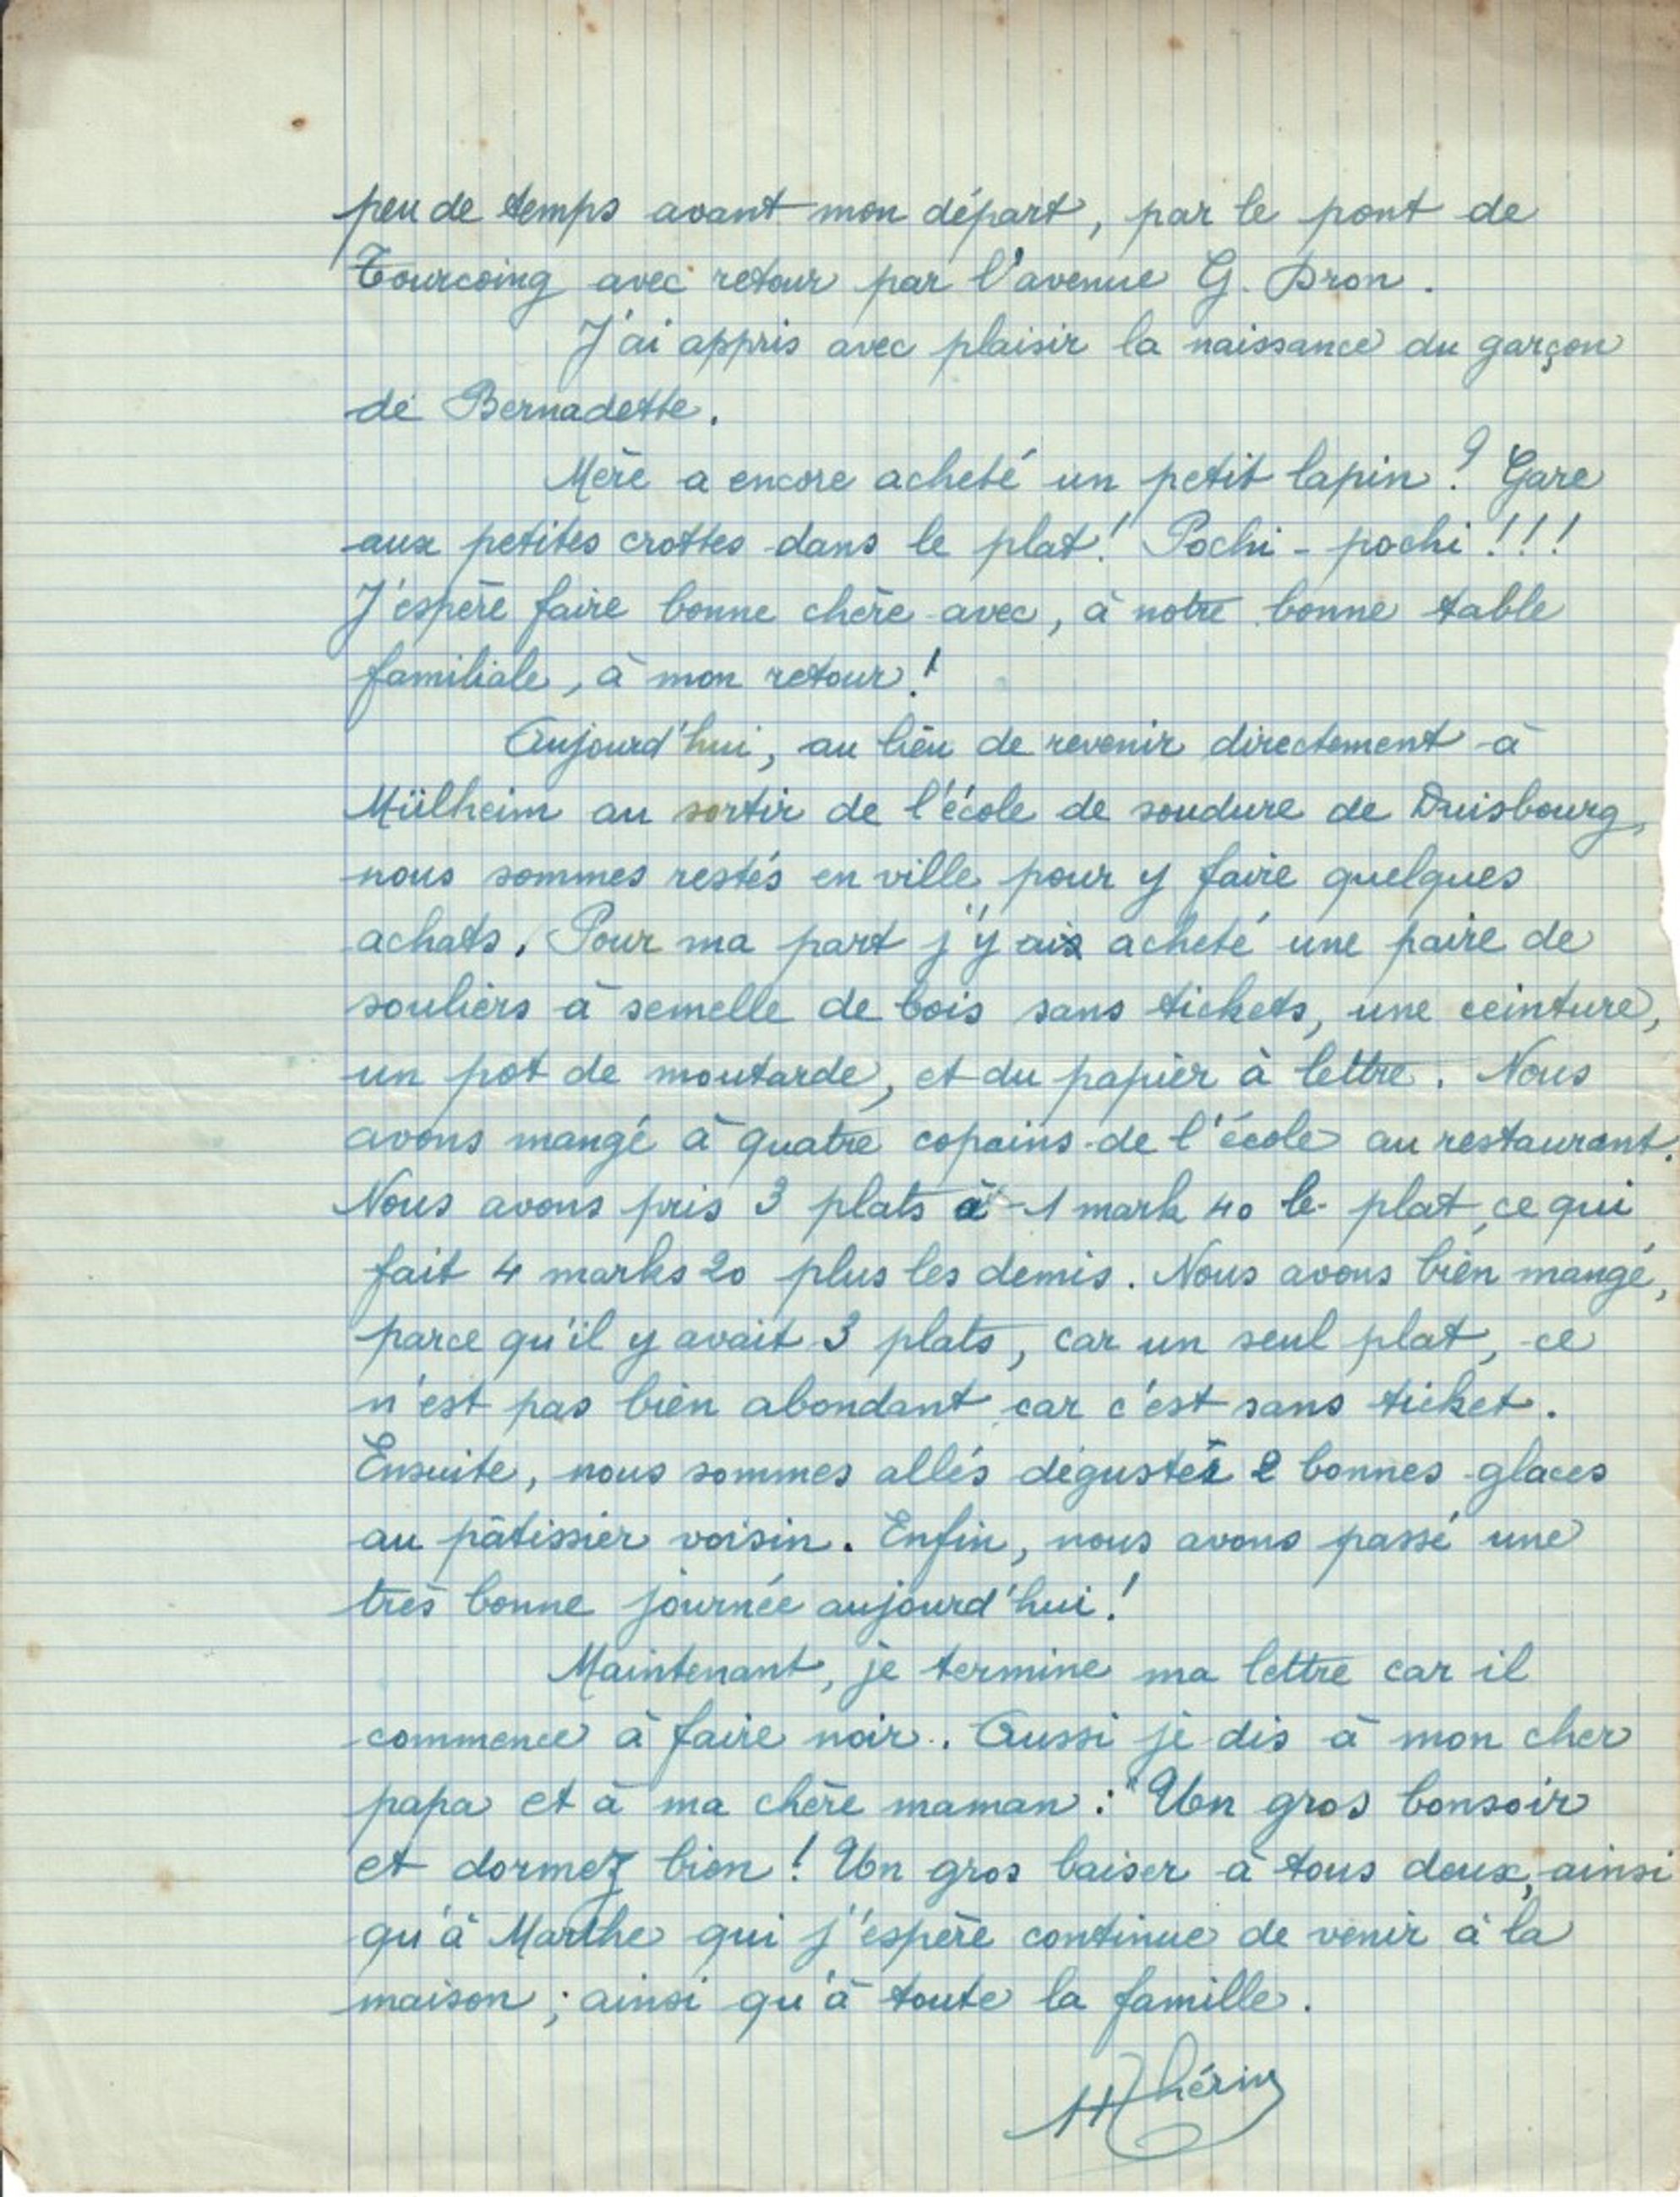 peu de temps avant mon départ, par le pont de
Tourcoing avec retour par l'avenue G. Dron.
J'ai appris avec plaisir la naissance du garçon
de Bernadette.
Mère a encore acheté un petit lapin ? Gare
aux petites crottes dans le plat ! Pochi - pochi !!!
J'espère faire bonne chère avec, à notre bonne table
familiale, à mon retour !
Aujourd'hui, au lieu de revenir directement à
Mülheim au sortir de l'école de soudure de Duisbourg,
nous sommes restés en ville pour y faire quelques
achats. Pour ma part j'y ai acheté une paire de
souliers à semelle de bois sans tickets, une ceinture,
un pot de moutarde, et du papier à lettre. Nous
avons mangé à quatre copains de l'école au restaurant.
Nous avons pris 3 plats à 1 mark 40 le plat, ce qui
fait 4 marks 20 plus les demis. Nous avons bien mangé,
parce qu'il y avait 3 plats, car un seul plat, ce
n'est pas bien abondant car c'est sans ticket.
Ensuite, nous sommes allés déguster 2 bonnes glaces
au pâtissier voisin. Enfin, nous avons passé une
très bonne journée aujourd'hui !
Maintenant, je termine ma lettre car il
commence à faire noir. Aussi je dis à mon cher
papa et à ma chère maman : "Un gros bonsoir
et dormez bien ! Un gros baiser à tous deux, ainsi
qu'à Marthe qui j'espère continue de venir à la
maison ; ainsi qu'à toute la famille.